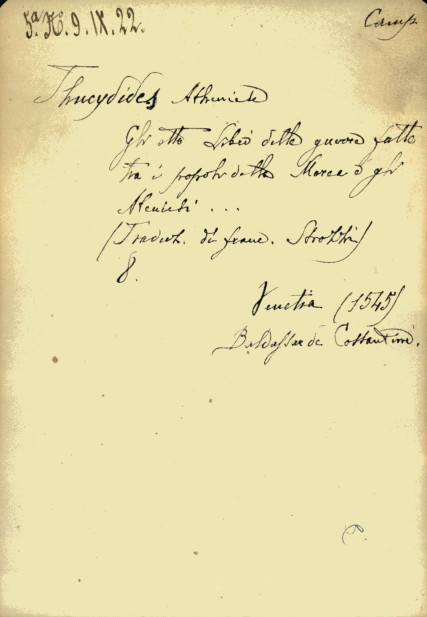 5ª. N. 9. IX. 22.
Camp
Thucydides Atheniese
Gli otto Libri delle guerre fatte
tra i popoli della Morea e gli
Ateniesi ...
(Traduct. di Franc. Strozzi)
8.
Venetia (1545)
Baldassar de Costantini.